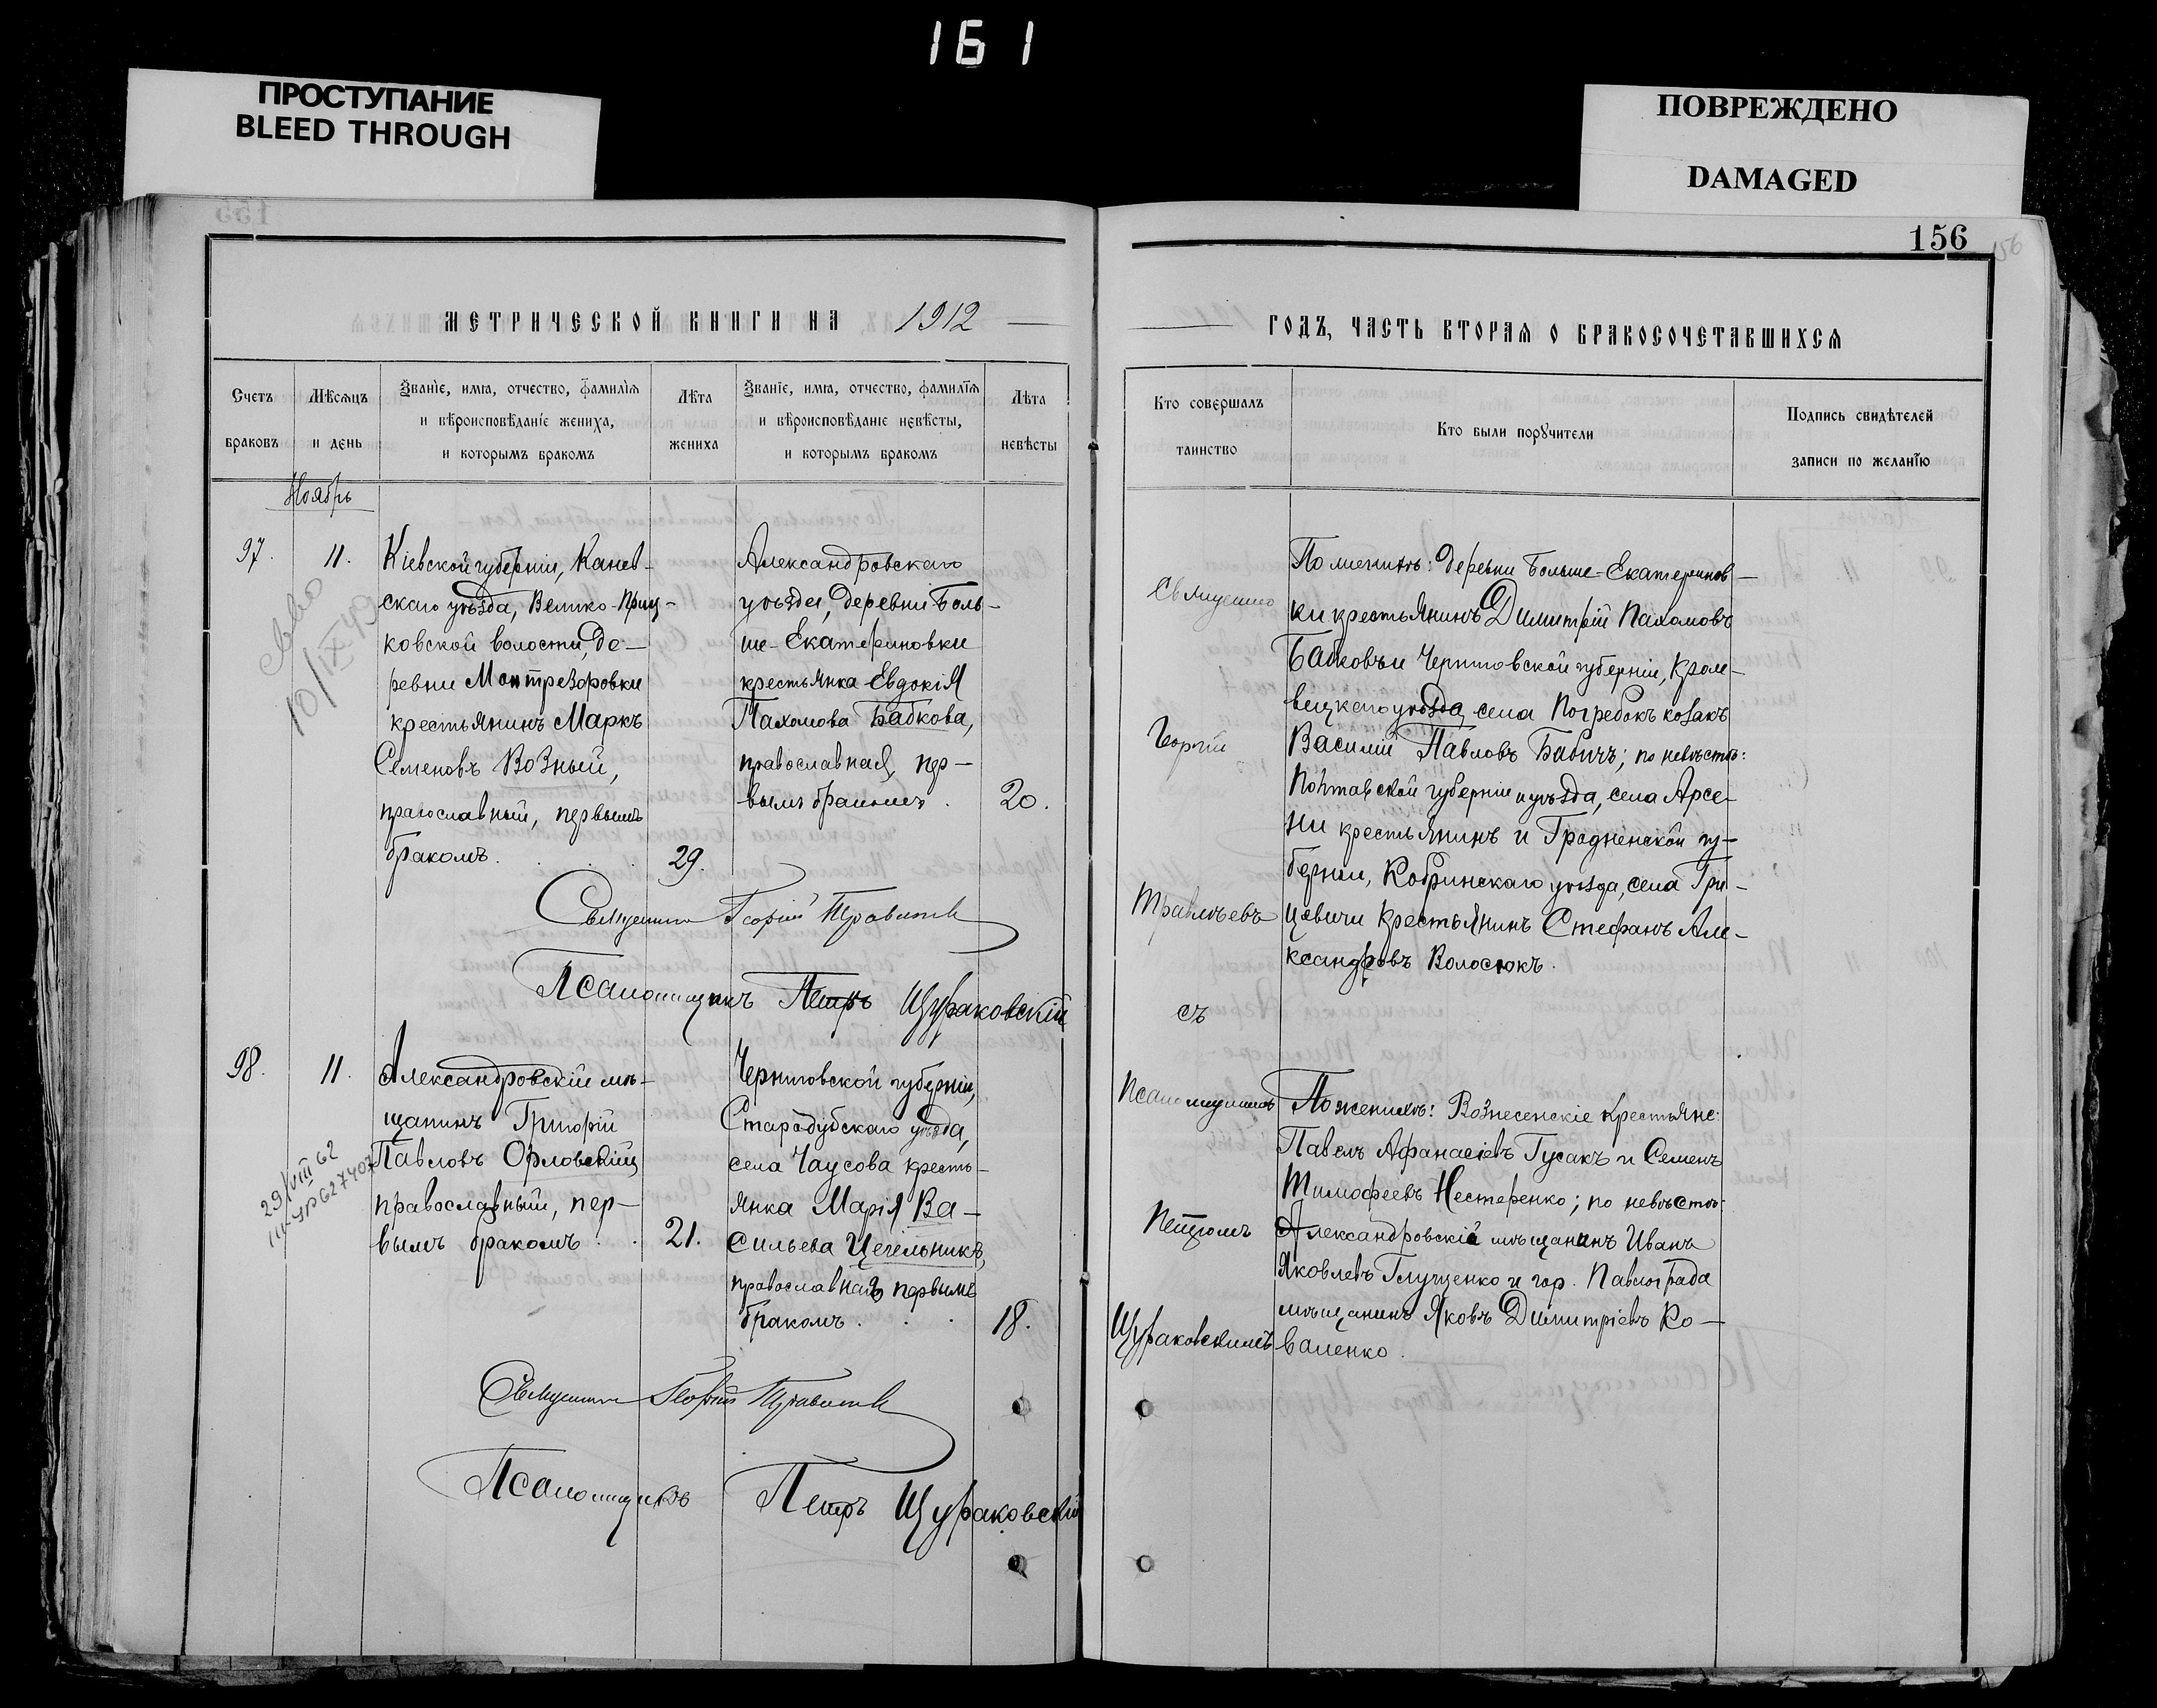 161
ПРОСТУПАНИЕ
BLEED THROUGH
ПОВРЕЖДЕНО
DAMAGED
МЕТРИЧЕСКОЙ КНИГИ НА 1912
Счетъ
браковъ
Мѣсяцъ
и день
Званіе, имя, отчество, фамилія
и вѣроисповѣданіе жениха,
и которымъ бракомъ
Лѣта
жениха
Званіе, имя, отчество, фамилія
и вѣроисповѣданіе невѣсты,
и которымъ бракомъ
Лѣта
невѣсты
Ноябрь
97.
11.
Кіевской губерніи, Канев-
скаго уѣзда, Велико-Приц-
ковской волости, де-
ревни Монтрезоровки
крестьянинъ Маркъ
Семеновъ Возный,
православный, первымъ
бракомъ.
29.
Александровскаго
уѣзда, деревни Боль-
ше-Екатериновки
крестьянка Евдокія
Пахомова Бабкова,
православная, пер-
вымъ бракомъ.
20.
10/IX 49
Священникъ Георгій
Псаломщикъ Петръ Щураковскій
98.
11.
29/VIII 62
Александровскій мѣ-
щанинъ Григорій
Павловъ Орловскій,
православный, пер-
вымъ бракомъ.
21.
Черниговской губерніи,
Стародубскаго уѣзда,
села Чаусова кресть-
янка Марія Ва-
сильева Цегельникъ,
православная, первымъ
бракомъ.
18.
Священникъ Георгій
Псаломщикъ Петръ Щураковскій
156
156
ГОДЪ, ЧАСТЬ ВТОРАЯ О БРАКОСОЧЕТАВШИХСЯ
Кто совершалъ
таинство
Кто были поручители
Подпись свидѣтелей
записи по желанію
Георгій
съ
Петромъ
Щураковскимъ
По женихѣ: деревни Больше-Екатеринов-
ки крестьянинъ Димитрій Пахомовъ
Бабковъ и Черниговской губерніи, Кроле-
вецкаго уѣзда, села Погребокъ козакъ
Василій Павловъ Бабичъ; по невѣстѣ:
Полтавской губерніи и уѣзда, села Арсе-
ни крестьянинъ и Гродненской гу-
берніи, Кобринскаго уѣзда, села Гри-
цевичи крестьянинъ Стефанъ Але-
ксандровъ Волосюкъ.
По женихѣ: Вознесенскіе крестьяне:
Павелъ Афанасіевъ Гусакъ и Семенъ
Тимофеевъ Нестеренко; по невѣстѣ:
Александровскій мѣщанинъ Иванъ
Яковлевъ Глущенко и гор. Павлограда
мѣщанинъ Яковъ Димитріевъ Ко-
валенко.